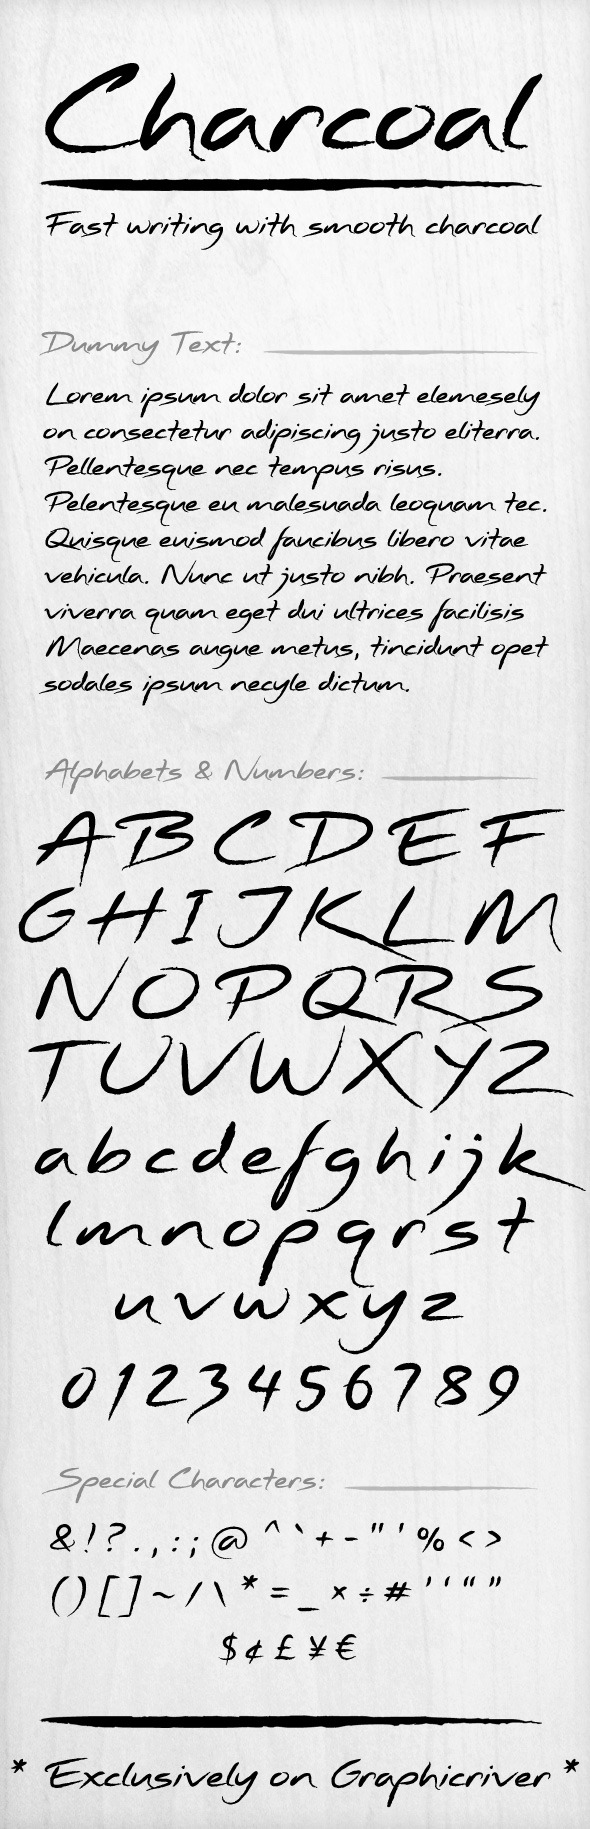 Charcoal
Fast writing with smooth charcoal
Dummy Text:
Lorem ipsum dolor sit amet elemesely
on consectetur adipiscing justo eliterra.
Pellentesque nec tempus risus.
Pelentesque eu malesuada leoquam tec.
Quisque euismod faucibus libero vitae
vehicula. Nunc ut justo nibh. Praesent
viverra quam eget dui ultrices facilisis
Maecenas augue metus, tincidunt opet
sodales ipsum necyle dictum.
Alphabets & Numbers:
A B C D E F
G H I J K L M
N O P Q R S
T U V W X Y Z
a b c d e f g h i j k
l m n o p q r s t
u v w x y z
0 1 2 3 4 5 6 7 8 9
Special Characters:
& ! ? . , : ; @ ^ ` + - " ' % < >
( ) [ ] ~ / \ * = _ × ÷ # ’ ‘ “ ”
$ ¢ £ ¥ €
* Exclusively on Graphicriver *